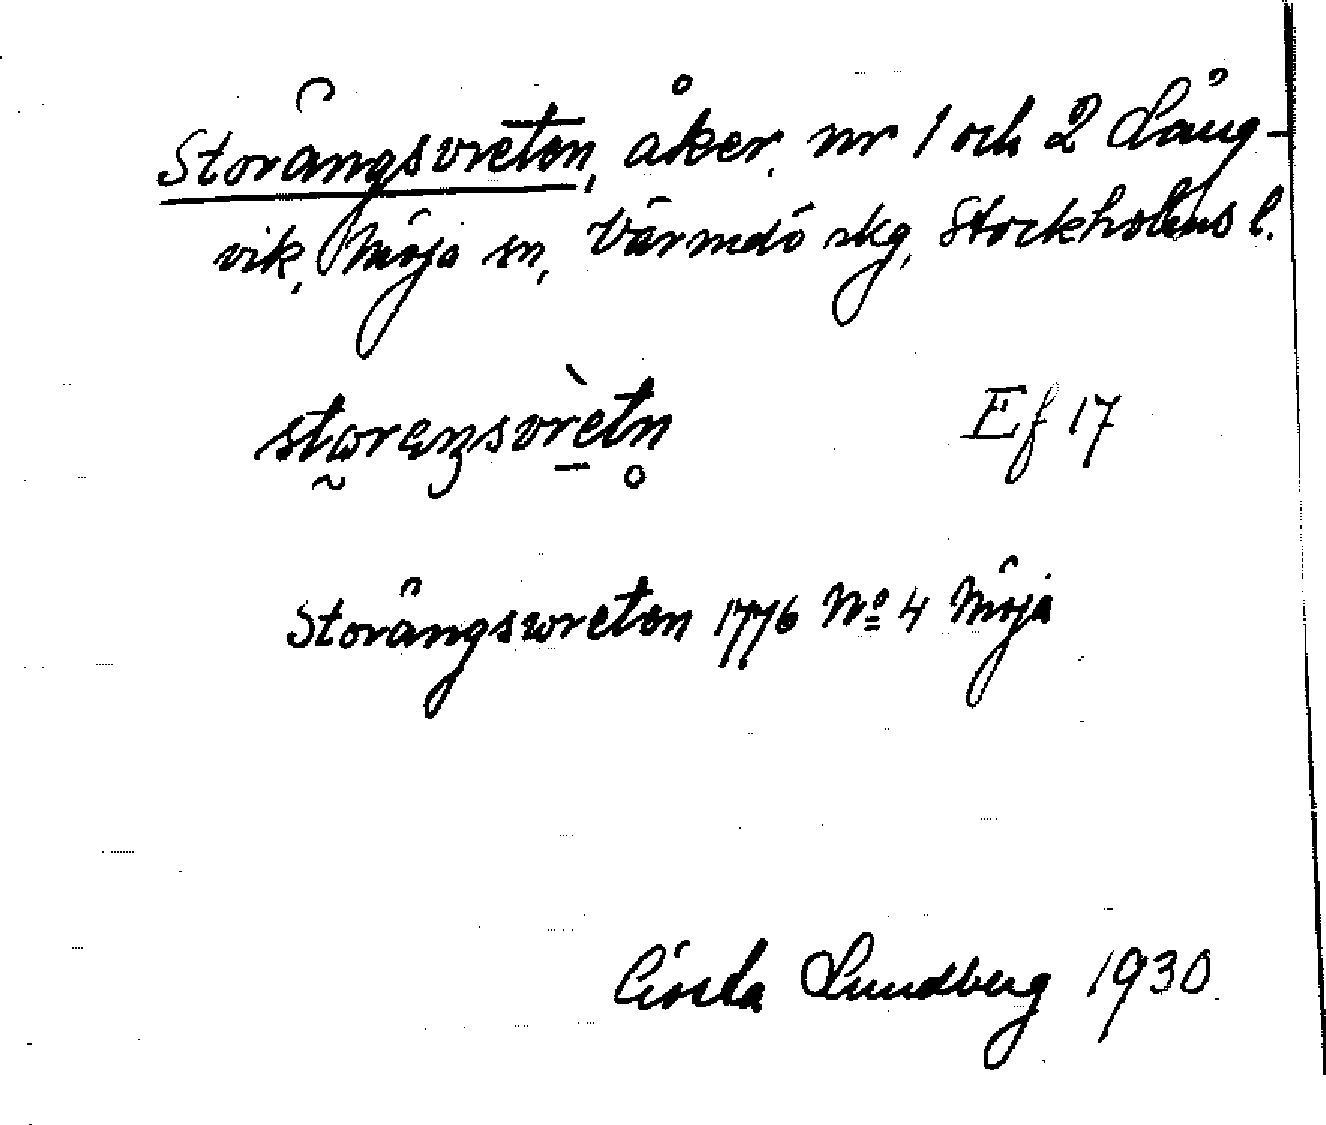 Storängsvreten, åker, nr 1 och 2 Lång-
vik, Möja sn, Värmdö skg, Stockholms l.
storæŋsvrètn̥ Ef 17
Storängswreten 1776 No 4 Möja
Gösta Lundberg 1930.